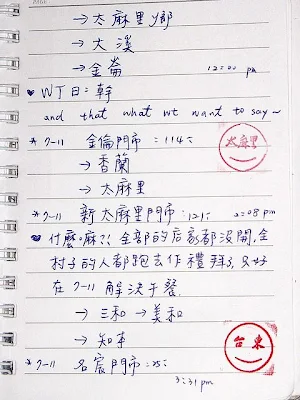 → 太麻里鄉
→ 大溪
→ 金崙 12:00 pm
♥ WJ曰:幹
and that what we want to say~
*7-11 金倫門市:114:
太麻里
→ 香蘭
→ 太麻里
*7-11 新太麻里門市:121: 2:08 pm
♥ 什麼嘛?! 全部的店家都沒開,全
村子的人都跑去作禮拜了,只好
在 7-11 解決午餐
→ 三和 → 美和
→ 知本
台東
*7-11 名宸門市:25:
3:31 pm